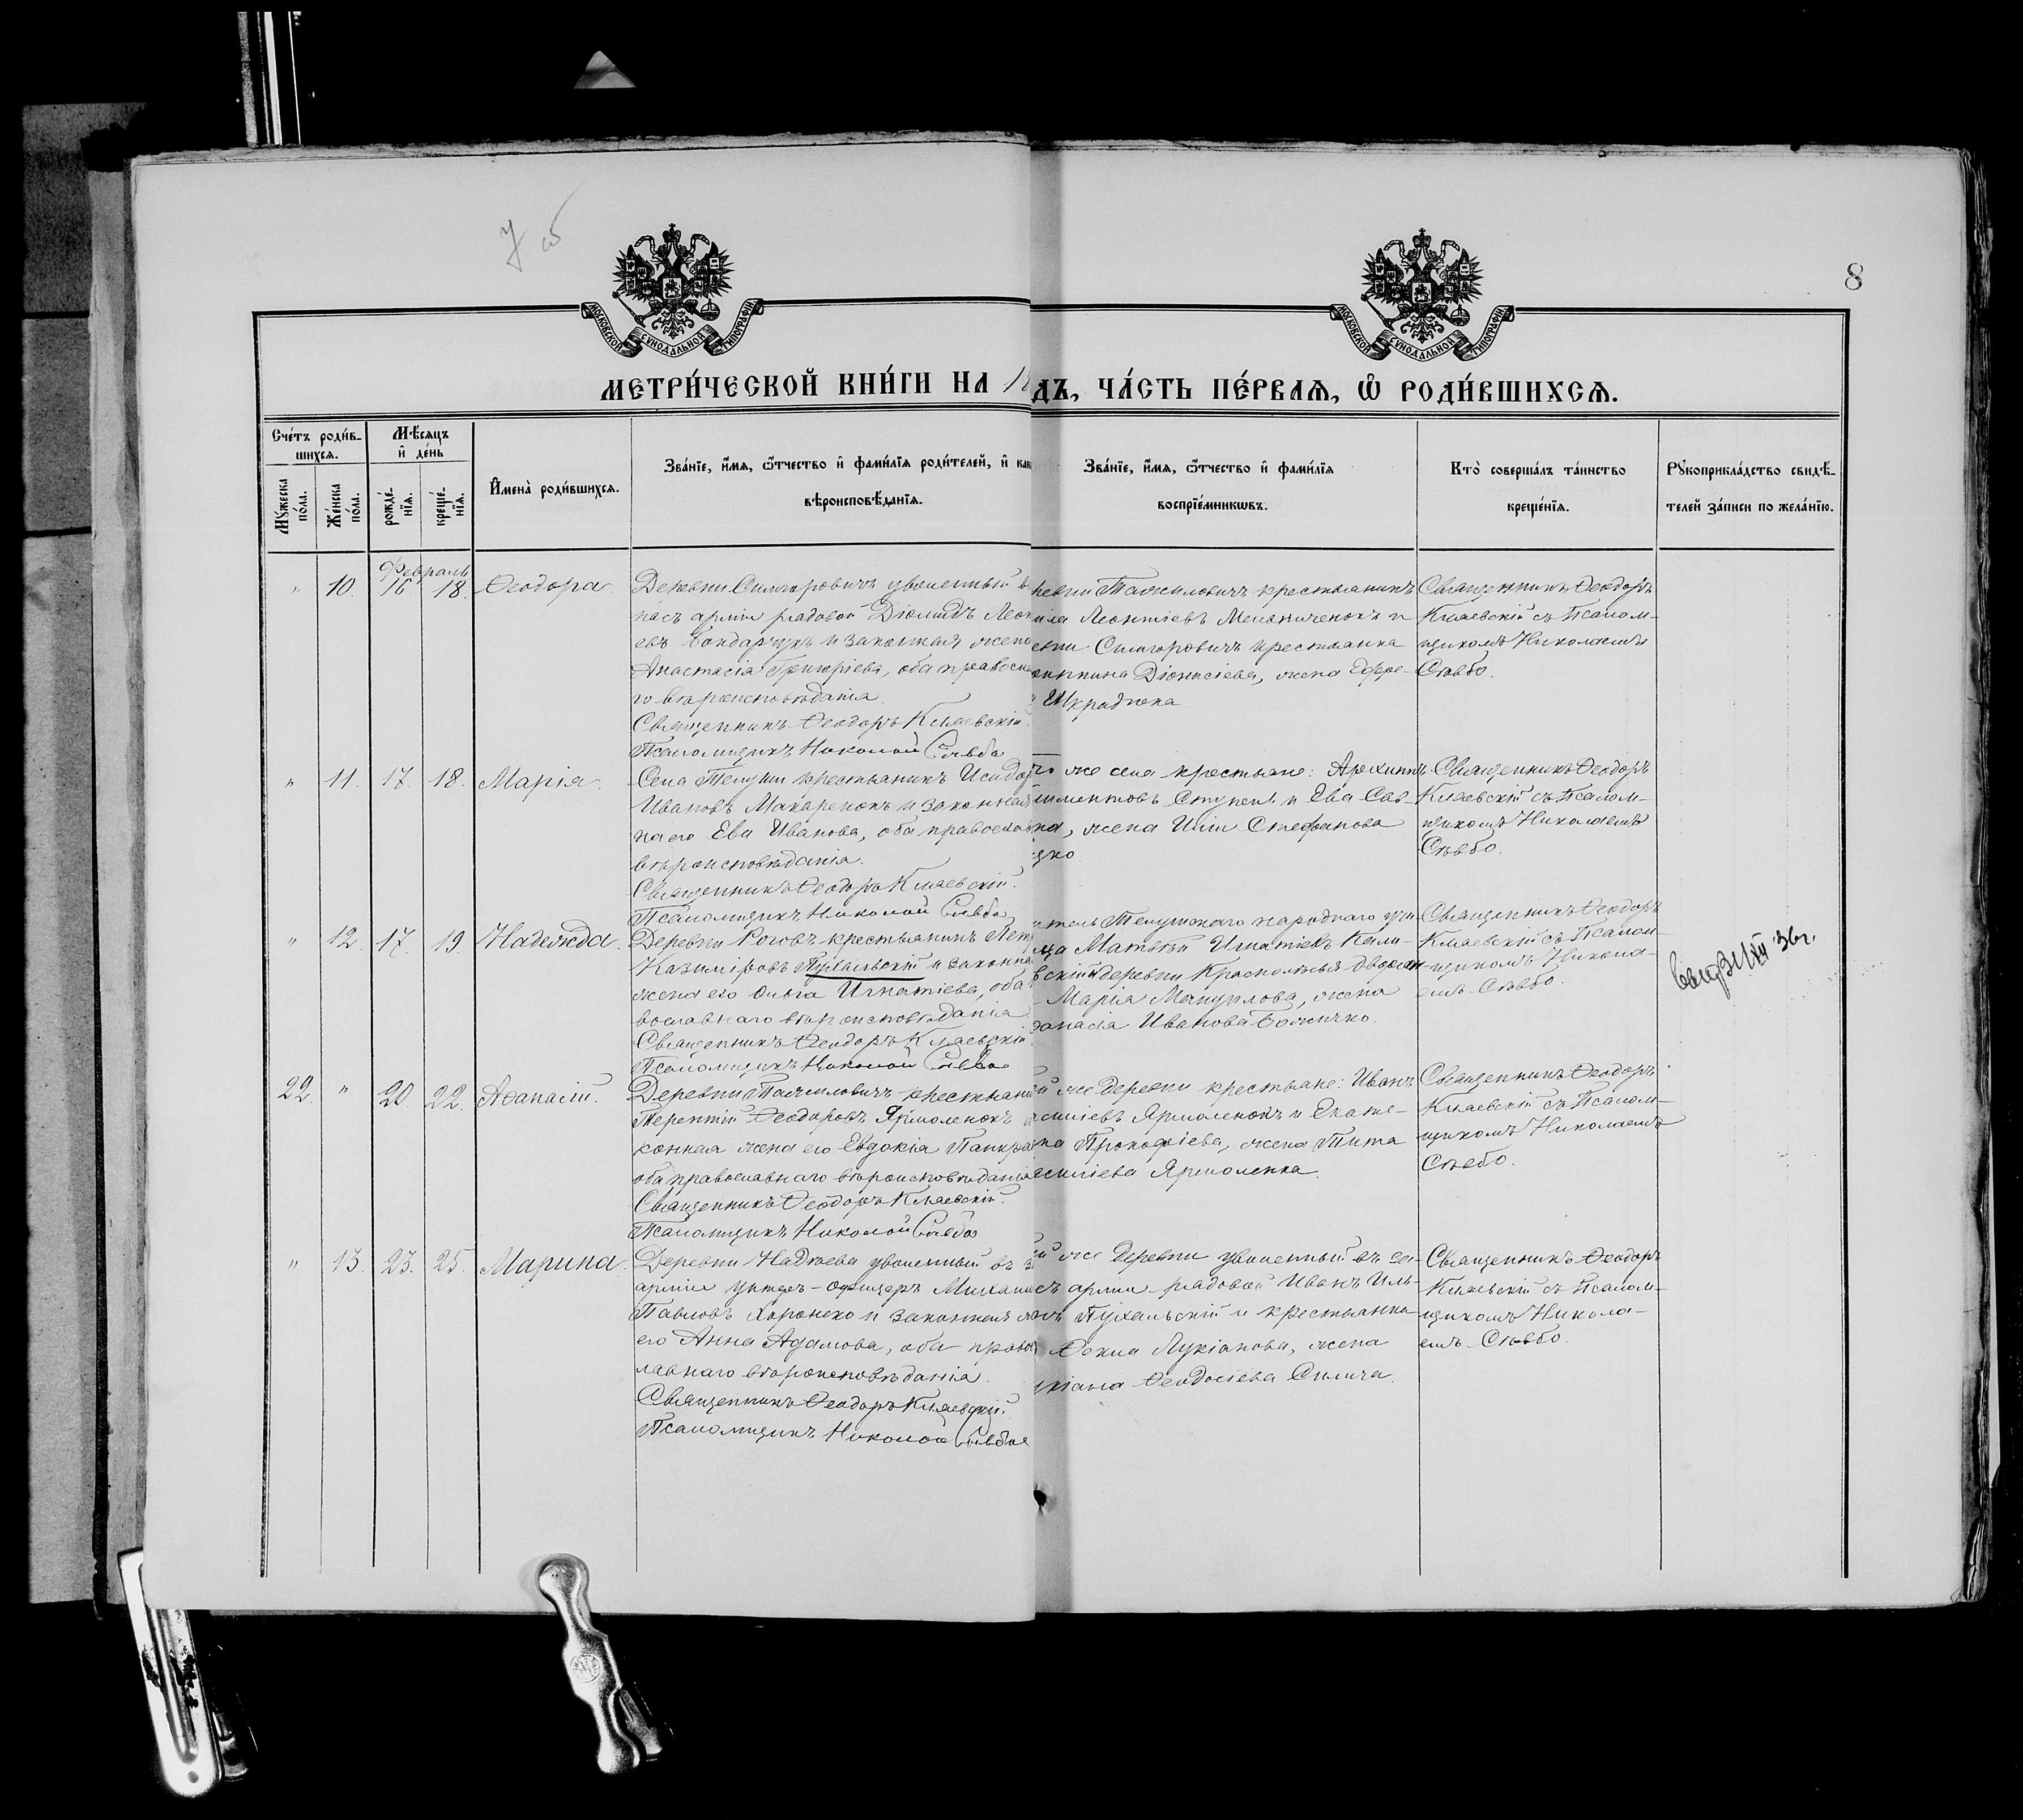 7 об
8
МОСКОВСКОЙ СѴНОДАЛЬНОЙ ТИПОГРАФІИ
МОСКОВСКОЙ СѴНОДАЛЬНОЙ ТИПОГРАФІИ
МЕТРИ́ЧЕСКОЙ КНИ́ГИ НА 18
ДЪ, ЧА́СТЬ ПЕ́РВАЯ, Ѡ҆ РОДИ́ВШИХСЯ.
Сче́тъ роди́в-
шихся.
Мꙋ́жеска по́ла.
Же́нска по́ла.
Мѣ́сяцъ
и҆ де́нь
рожде́-
нїя.
креще́-
нїя.
И҆мена̀ роди́вшихся.
Зва́нїе, и҆́мя, ѻ҆́тчество и҆ фами́лїя роди́телей, и҆ как
вѣроисповѣ́данїя.
Зва́нїе, и҆́мя, ѻ҆́тчество и҆ фами́лїя
воспрїе́мникѡвъ.
Кто̀ соверша́лъ та́инство
креще́нїя.
Рꙋкоприкла́дство свидѣ́-
телей за́писи по жела́нїю.
Февраль
" 10. 16 18. Ѳеодора
Деревни Симгоровичъ уволенный в
пасъ арміи рядовой Діомидъ Леон
евъ Бондарчукъ и законная жена
Анастасія Григоріева, оба правосла
го вѣроисповѣданія.
Священникъ Ѳеодоръ Кляевскій.
Псаломщикъ Николай Сѣвбо
ревни Тажиловичъ крестьянинъ
ила Леонтіевъ Мельниченокъ и
евни Симгоровичъ крестьянка
Діонисіева, жена Ефре-
Шкраднека
Священникъ Ѳеодоръ
Кляевскій съ Псалом-
щикомъ Николаемъ
Сѣвбо.
" 11. 17. 18. Марія.
Села Телуши крестьянинъ Исидор
Ивановъ Макаренокъ и законная
на его Ева Иванова, оба православ
вѣроисповѣданія.
Священникъ Ѳеодоръ Кляевскій.
Псаломщикъ Николай Сѣвбо
го же села крестьяне: Архиппъ
Ступень и Ева Сав-
на, жена Стефанова
цко.
Священникъ Ѳеодоръ
Кляевскій съ Псалом-
щикомъ Николаемъ
Сѣвбо.
" 12. 17. 19. Надежда.
Деревни Роговъ крестьянинъ Петр
Казиміровъ Пухальскій и законна
жена его Ольга Игнатіева, оба
вославнаго вѣроисповѣданія
Священникъ Ѳеодоръ Кляевскій
Псаломщикъ Николай Сѣвбо
итель Телушскаго народнаго учи-
ща Матвѣй Игнатіевъ Кали-
вскій и деревни Краснолѣсья дворян
Марія Мануилова, жена
ѳанасія Иванова Божичко.
Священникъ Ѳеодоръ
Кляевскій съ Псалом-
щикомъ Никола-
емъ Сѣвбо.
22. " 20. 22. Аѳанасій.
Деревни Тажиловичъ крестьяни
Терентій Ѳеодоровъ Ярмоленокъ и
конная жена его Евдокія Панкра
оба православнаго вѣроисповѣданія
Священникъ Ѳеодоръ Кляевскій.
Псаломщикъ Николай Сѣвбо
й же деревни крестьяне: Иванъ
асиліевъ Ярмоленокъ и Екате-
на Прокофіева, жена Тита
асиліева Ярмоленка.
Священникъ Ѳеодоръ
Кляевскій съ Псалом-
щикомъ Николаемъ
Сѣвбо.
" 13. 23. 25. Марина.
Деревни Надѣева уволенный въ за
арміи унтеръ-офицеръ Михаил
Павловъ Хоронеко и законная ж
его Анна Адамова, оба право
лавнаго вѣроисповѣданія.
Священникъ Ѳеодоръ Кляевскій.
Псаломщикъ Николай Сѣвбо
й же деревни уволенный въ за-
съ арміи рядовой Иванъ Иль-
Пухальскій и крестьянка
Ѳекла Лукіанова, жена
укіана Ѳеодосіева Силича.
Священникъ Ѳеодоръ
Кляевскій съ Псалом-
щикомъ Никола-
емъ Сѣвбо.